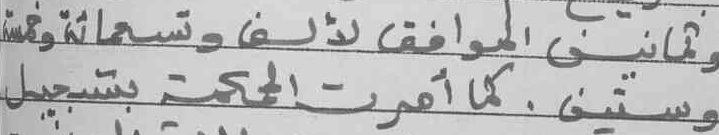 وثمانين الموافق لألف وتسعمائة وخمسة
وستين . كما أمرت المحكمة بتسجيل